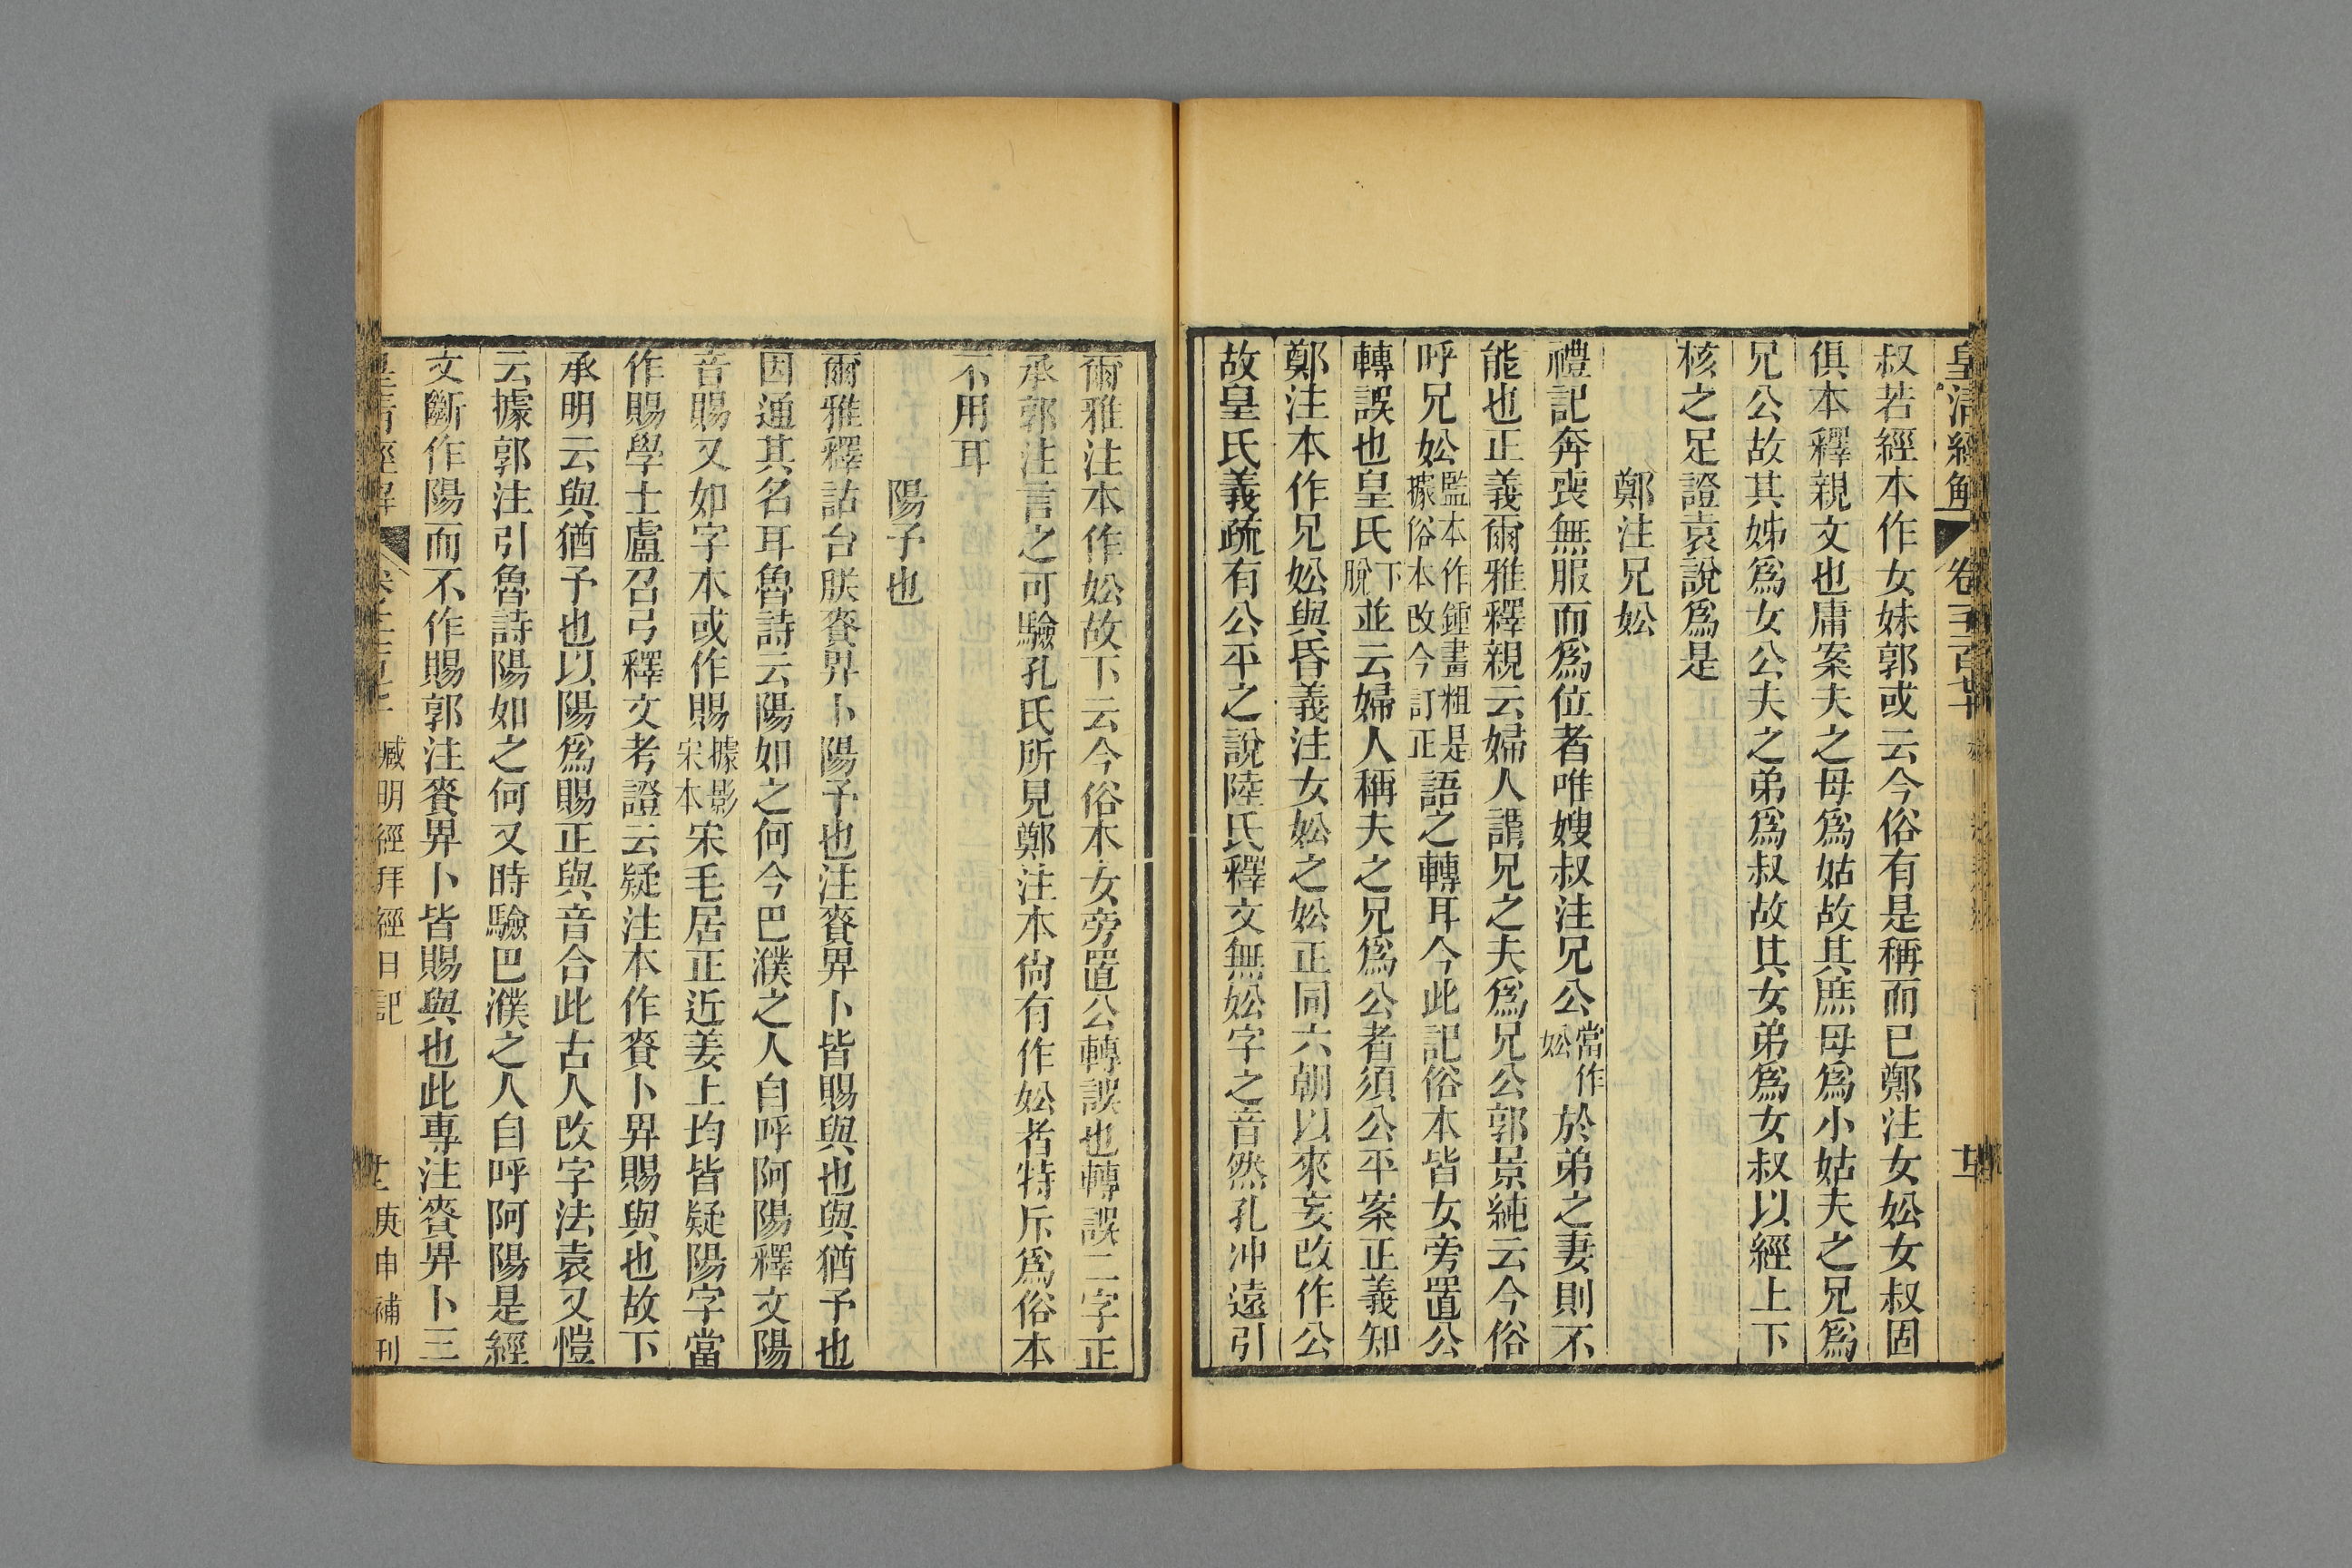 皇清經解 卷 千百七十
叔若經本作女妹郭或云今俗有是稱而已鄭注女妐女叔固
俱本釋親文也庸案夫之母爲姑故其庶母爲小姑夫之兄爲
兄公故其姊爲女公夫之弟爲叔故其女弟爲女叔以經上下
核之足證袁說爲是
鄭注兄妐
禮記奔喪無服而爲位者唯嫂叔注兄公當作妐於弟之妻則不
能也正義爾雅釋親云婦人謂兄之夫爲兄公郭景純云今俗
呼兄妐監本作鍾畫粗是據俗本改今訂正語之轉耳今此記俗本皆女旁置公
轉誤也皇氏下脫並云婦人稱夫之兄爲公者須公平案正義知
鄭注本作兄妐與昏義注女妐之妐正同六朝以來妄改作公
故皇氏義疏有公平之說陸氏釋文無妐字之音然孔冲遠引
爾雅注本作妐故下云今俗本女旁置公轉誤也轉誤二字正
承郭注言之可驗孔氏所見鄭注本尙有作妐者特斥爲俗本
不用耳
陽予也
爾雅釋詁台朕賚畀卜陽予也注賚畀卜皆賜與也與猶予也
因通其名耳魯詩云陽如之何今巴濮之人自呼阿陽釋文陽
音賜又如字本或作賜據影宋本宋毛居正近姜上均皆疑陽字當
作賜學士盧召弓釋文考證云疑注本作賚卜畀賜與也故下
承明云與猶予也以陽爲賜正與音合此古人改字法袁又愷
云據郭注引魯詩陽如之何又時驗巴濮之人自呼阿陽是經
文斷作陽而不作賜郭注賚畀卜皆賜與也此專注賚畀卜三
皇清經解 臧明經拜經日記 庚申補刊